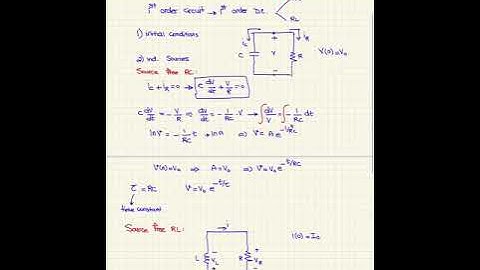 1st order circuit → 1st order D.E.
RL
1) initial conditions
ic iR
C V R V(0)=V₀
2) ind. Sources
Source free RC:
ic + iR = 0 → C dV/dt + V/R = 0
C dV/dt = - V/R ⇒ dV/dt = - 1/RC · V → ∫ dV/V = ∫ - 1/RC dt
lnV = - 1/RC t + lnA ⇒ V = A e^-t/RC
V(0)=V₀ ⇒ A=V₀ ⇒ V = V₀ e^-t/RC
τ = RC V = V₀ e^-t/τ
time constant
Source free RL:
i
i(0) = I₀
L VL R VR